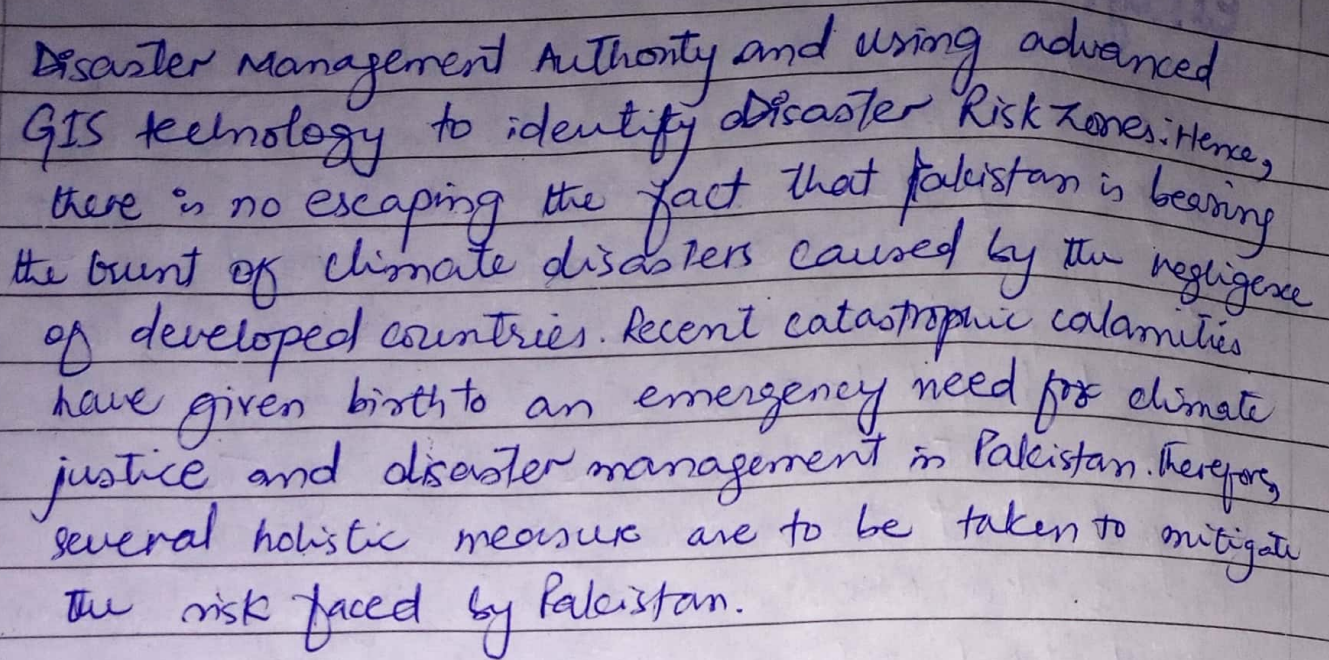 Disaster Management Authority and using advanced
GIS technology to identify Disaster Risk Zones. Hence,
there is no escaping the fact that Pakistan is bearing
the brunt of climate disasters caused by the negligence
of developed countries. Recent catastrophic calamities
have given birth to an emergency need for climate
justice and disaster management in Pakistan. Therefore,
several holistic measure are to be taken to mitigate
the risk faced by Pakistan.